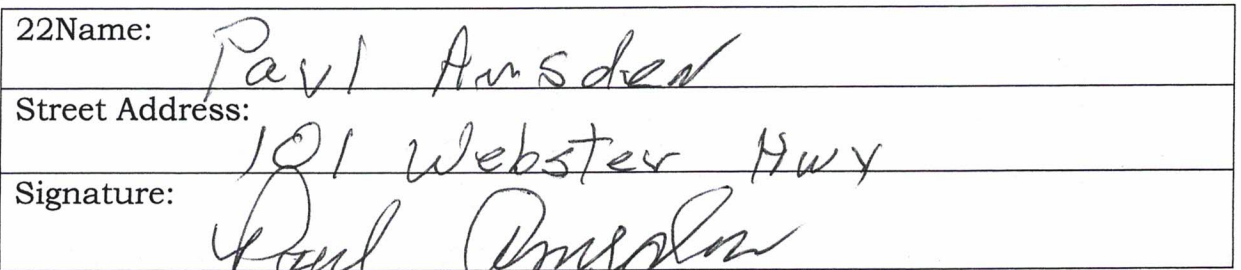 22Name: Paul Amsden
Street Address: 101 Webster Hwy
Signature: Paul Amsden